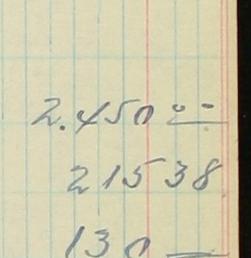 2.450 00
215 38
130 —